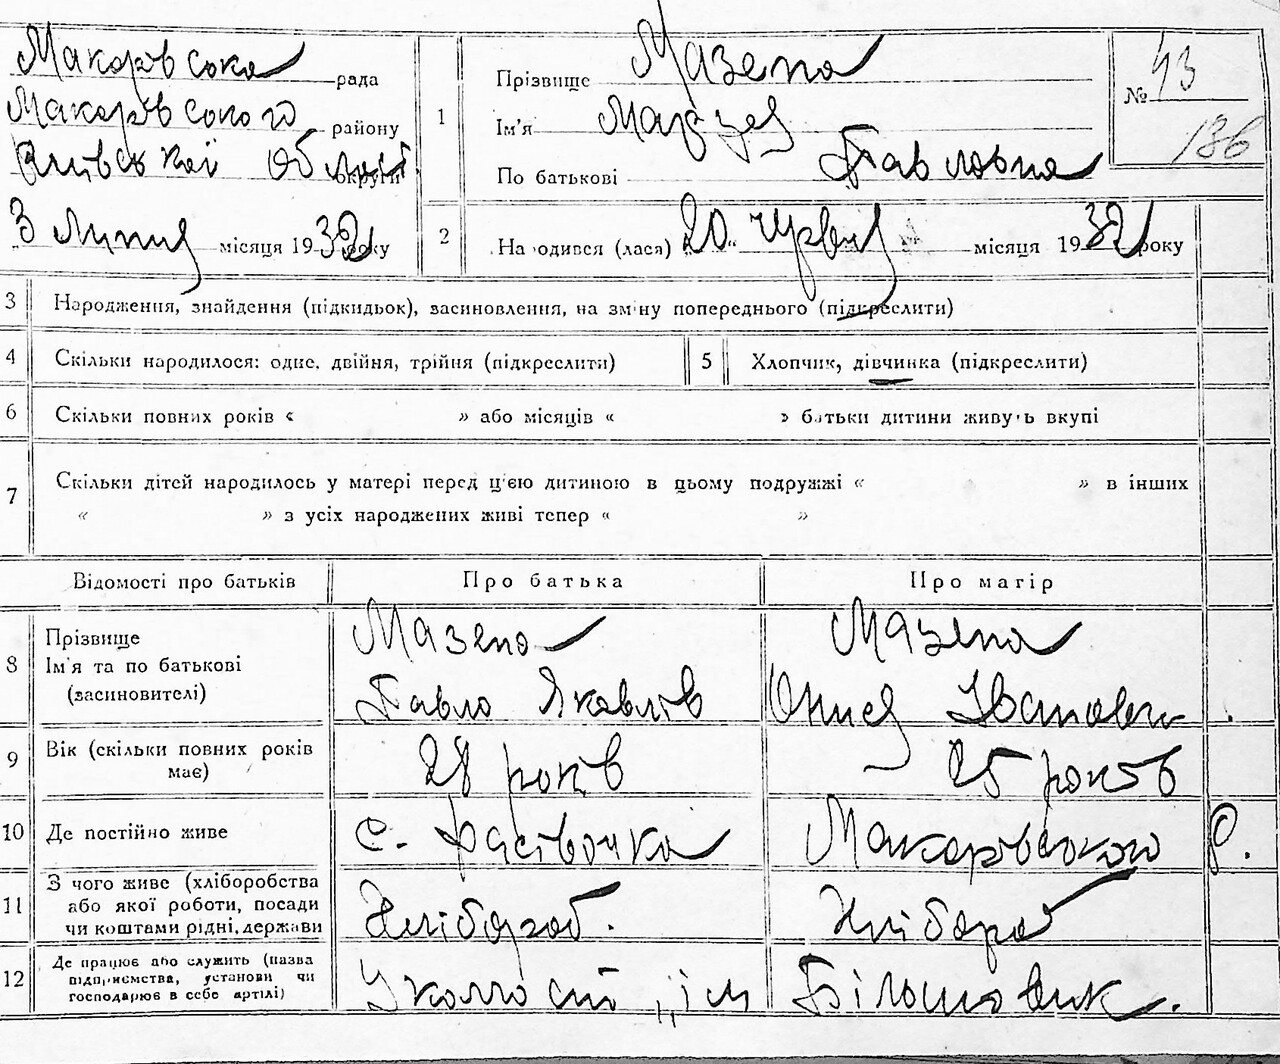 Макарівська рада
Макарівського району
Київської Області округи
3 Липня місяця 1932 року
1
Прізвище Мазепа
Ім'я
По батькові Павловна
№ 43
186
2 На одився (лася) „20" червня місяця 1932 року
3 Народження, знайдення (підкидьок), засиновлення, на зміну попереднього (підкреслити)
4 Скільки народилося: одне, двійня, трійня (підкреслити)
5 Хлопчик, дівчинка (підкреслити)
6 Скільки повних років « » або місяців « » батьки дитини живуть вкупі
7 Скільки дітей народилось у матері перед ц'єю дитиною в цьому подружжі « » в інших
« » з усіх народжених живі тепер « »
Відомості про батьків Про батька Про матір
8 Прізвище
Ім'я та по батькові
(засиновителі)
Мазепа
Павло Яковлів
Мазепа
Онися Івановн
9 Вік (скільки повних років
має)
28 років
25 років
10 Де постійно живе с. Фасівочка Макарівського р.
11 З чого живе (хліборобства
або якої роботи, посади
чи коштами рідні, держави
Хлібороб.
Хлібороб
12 Де працює або служить (назва
підприємства, установи чи
господарює в себе артілі)
У колгоспі „ім Більшовик.